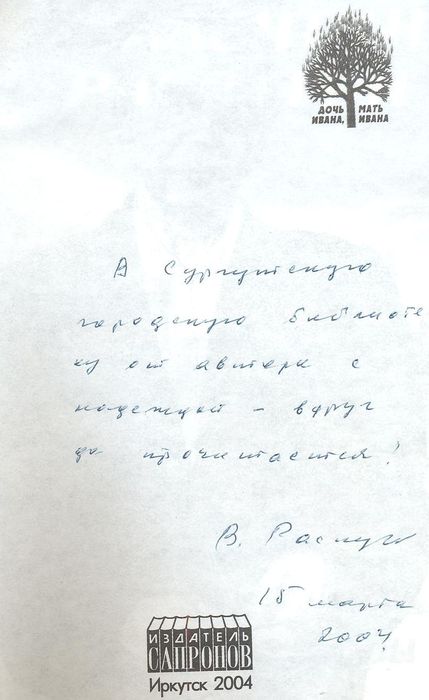 ДОЧЬ МАТЬ
ИВАНА, ИВАНА
В Сургутскую
городскую библиоте
ку от автора с
надеждой – вдруг
да прочитается!
В. Распутин
15 марта
2004
ИЗДАТЕЛЬ
САПРОНОВ
Иркутск 2004